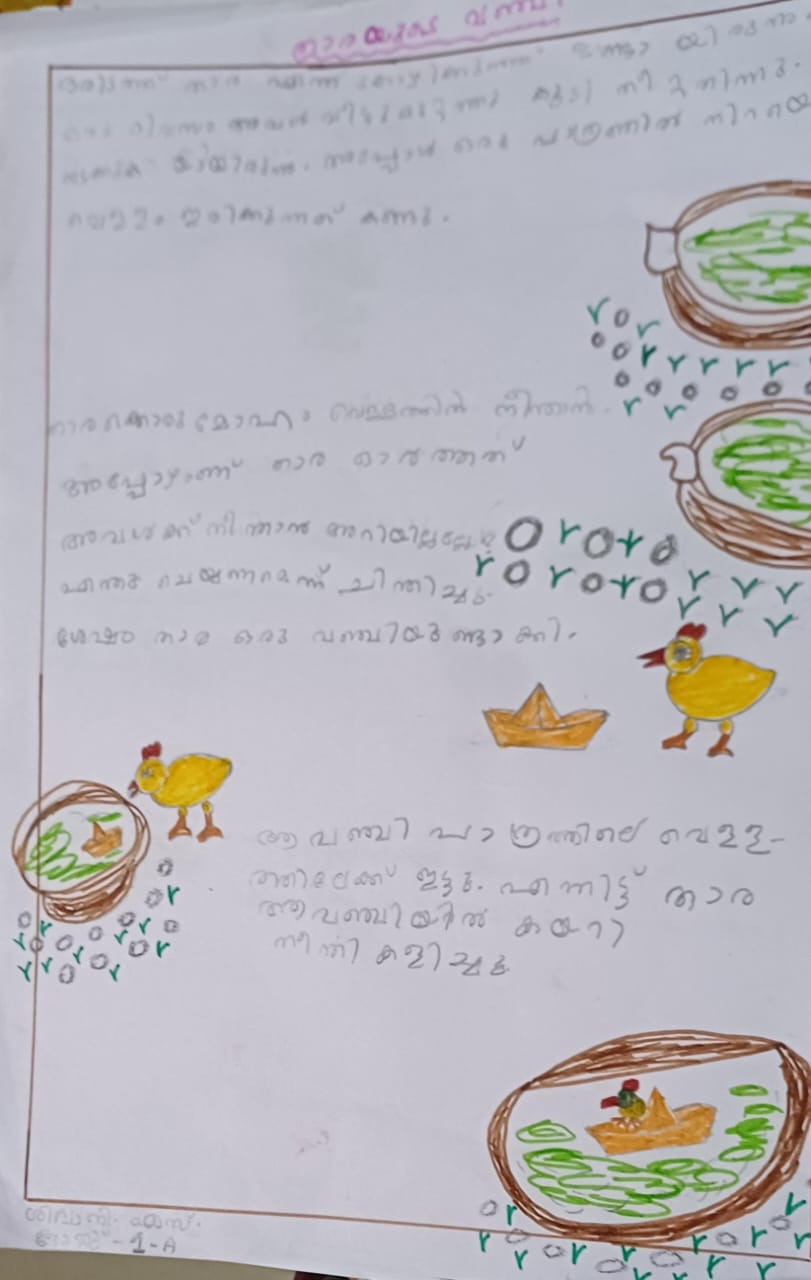 താരയുടെ വഞ്ചി
താര എന്ന കോഴിക്കുഞ്ഞ് ഉണ്ടായിരുന്നു.
ഒരു ദിവസം അവൾ വീട്ടുമുറ്റത്തു കൂടി
അപ്പോൾ ഒരു പാത്രത്തിൽ നിറയെ
വെള്ളം ഇരിക്കുന്നത് കണ്ടു.
താരക്കൊരു മോഹം വെള്ളത്തിൽ നീന്താൻ.
അപ്പോഴാണ് താര ഓർത്തത്
അവൾക്ക് നീന്താൻ അറിയില്ലല്ലോ
എന്തു ചെയ്യണമെന്ന് ചിന്തിച്ചു.
ശേഷം താര ഒരു വഞ്ചിയുണ്ടാക്കി.
ആ വഞ്ചി പാത്രത്തിലെ വെള്ള-
ത്തിലേക്ക് ഇട്ടു. എന്നിട്ട് താര
ആ വഞ്ചിയിൽ കയറി
നീന്തി കളിച്ചു.
ശിവാനി. എസ്.
ക്ലാസ്സ് - 1-A